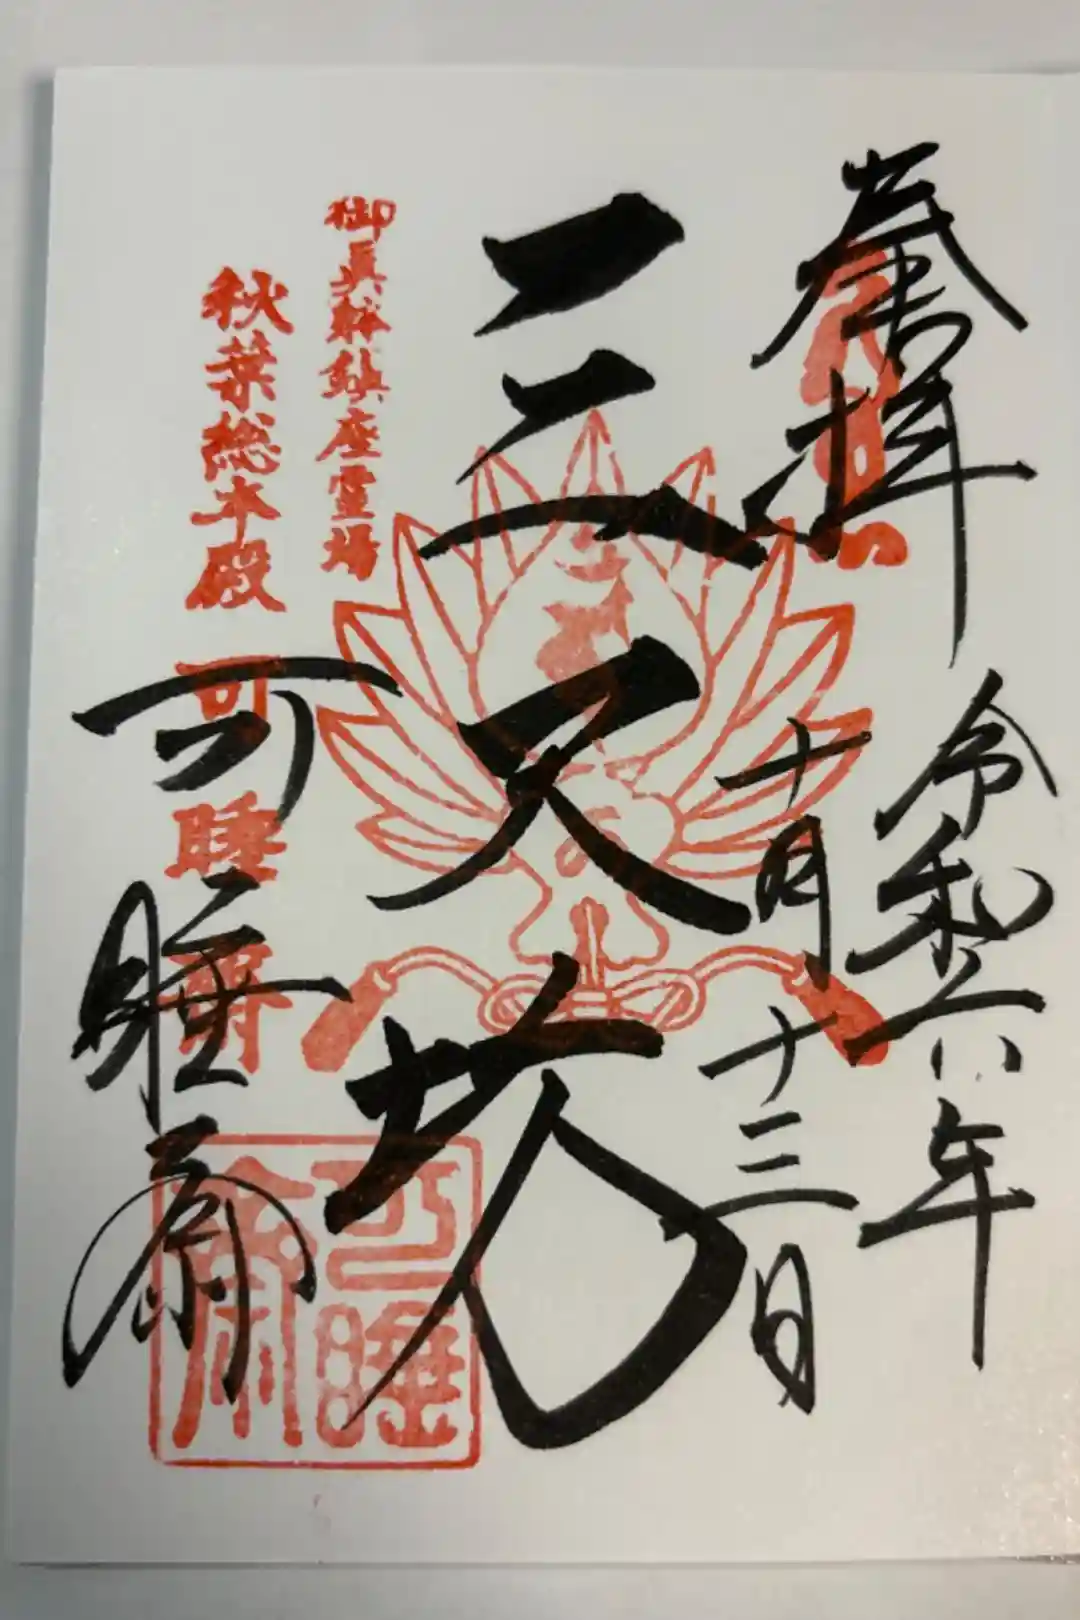 奉拝
令和六年
十月十三日
三尺坊
御真躰鎮座霊場
秋葉総本殿
可睡斎
可睡斎
可睡
斎